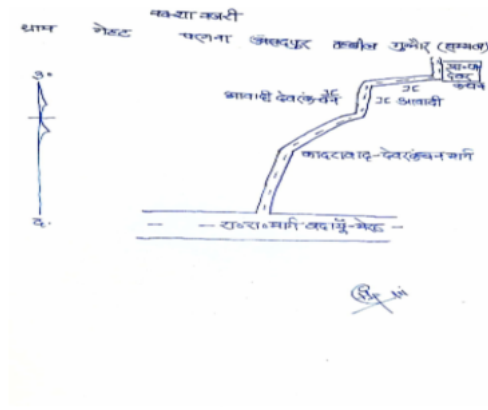 नक्शा नजरी
ग्राम गेहट परगना असदपुर तहसील गुन्नौर (सम्भल)
उ०
देवर
कंचन
आबादी देवर कंचन
आबादी
कादराबाद-देवरकंचन मार्ग
रा०रा०मार्ग बदायूँ-मेरठ
द.